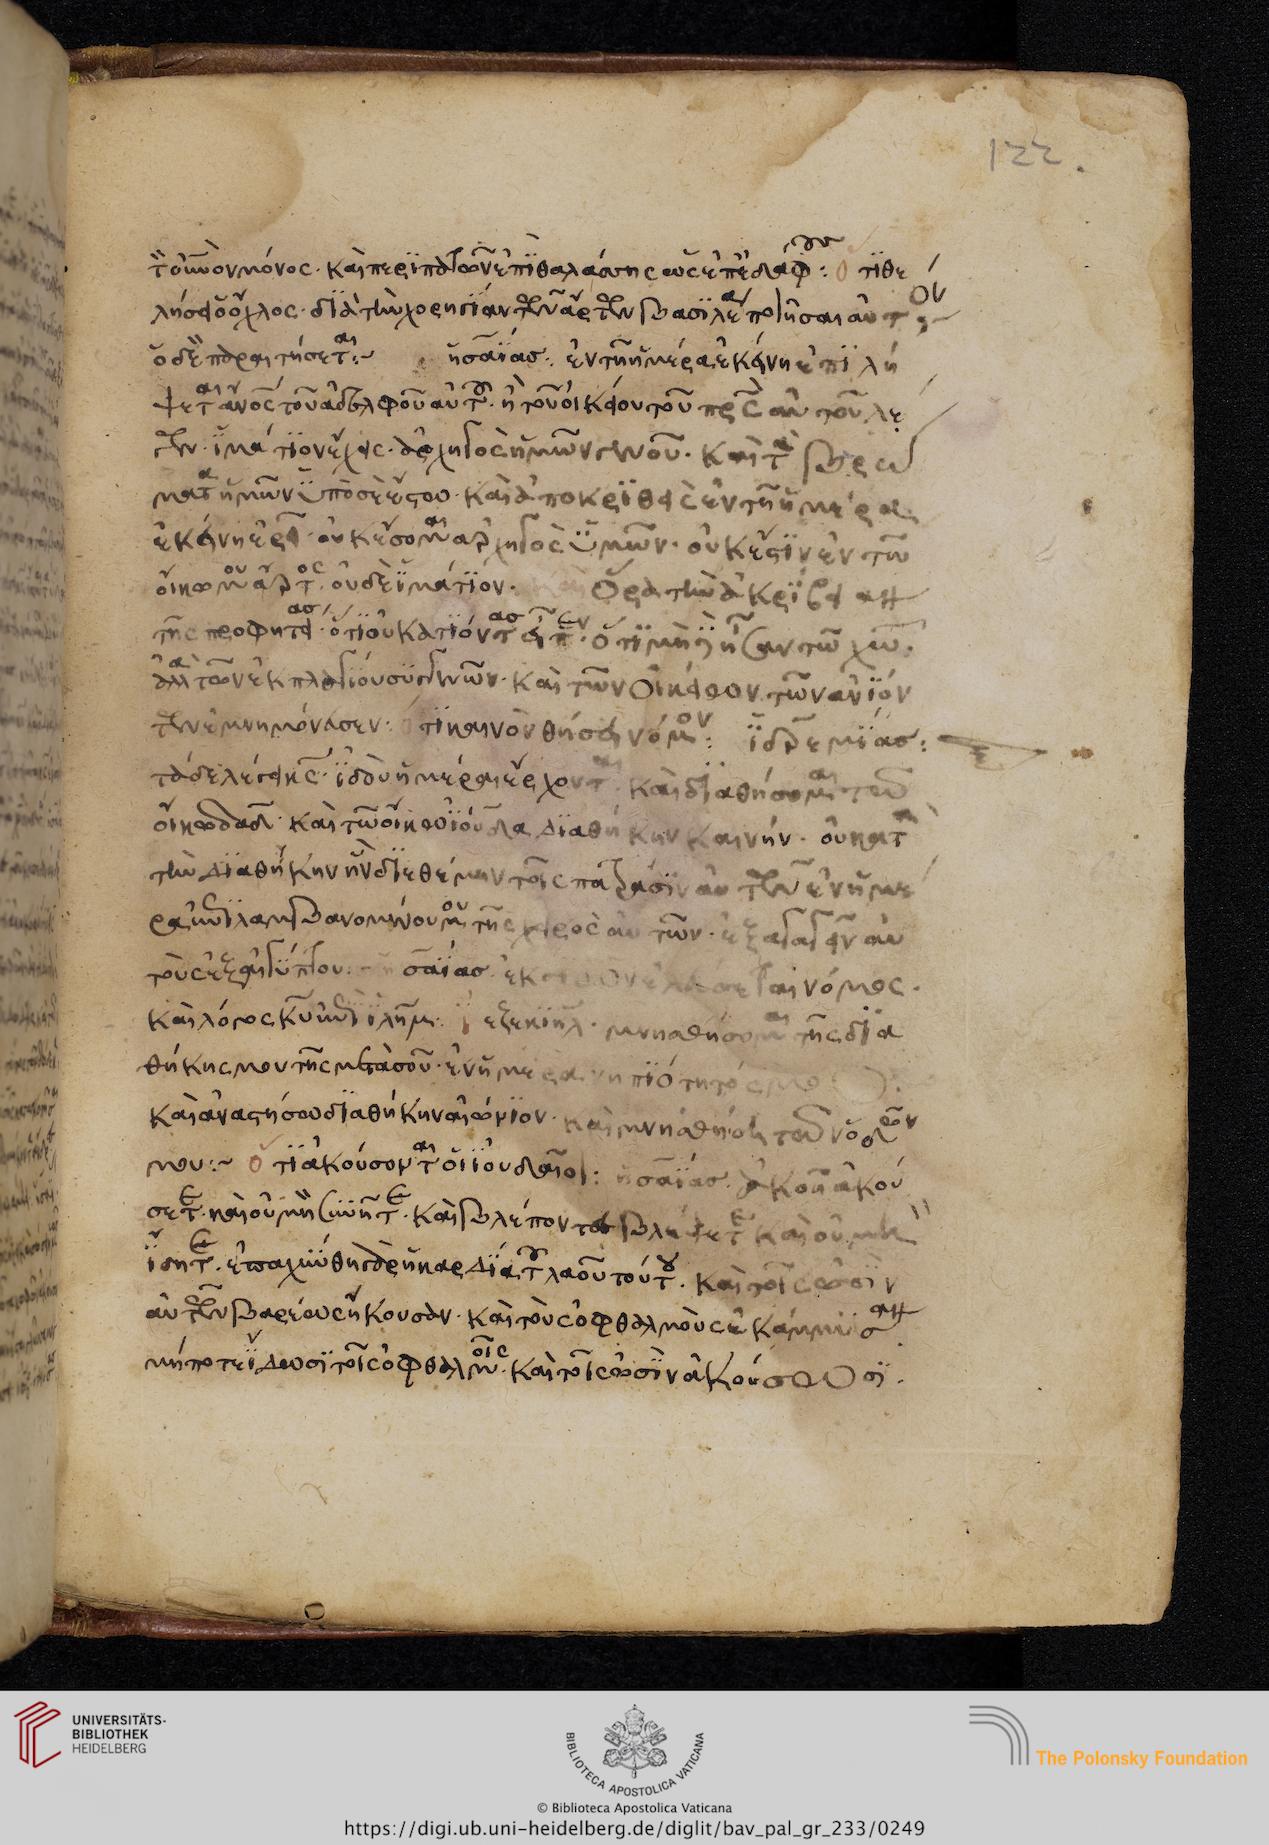 122.
τείνων τὸν οὐρανὸν μόνος· καὶ περιπατῶν ἐπὶ θαλάσσης ὡς ἐπ' ἐδάφους: ὅτι θε
λήσει ὁ ὄχλος· διὰ τὴν χορηγίαν τῶν ἄρτων βασιλέα ποιῆσαι αὐτόν
ὁ δὲ παραιτήσεται: ἡσαΐας: ἐν τῇ ἡμέρα ἐκείνη ἐπιλή
ψεται ἄνος τοῦ ἀδελφοῦ αὐτοῦ· ἢ τοῦ οἰκείου τοῦ πρς αὐτοῦ λέ
γων· ἱμάτιον ἔχεις· ἀρχηγὸς ἡμῶν γενοῦ· καὶ τὰ βρώ
ματα ἡμῶν ὑπὸ σὲ ἔστω· καὶ ἀποκριθεὶς ἐν τῇ ἡμέρα
ἐκείνη ἐρεῖ· οὐκ ἔσομαι ἀρχηγὸς ὑμῶν· οὐκ ἔστιν ἐν τῶ
οἴκω μου ἄρτος· οὐδὲ ἱμάτιον· ὅρα τὴν ἀκρίβειαν
τῆς προφητείας· ὅτι
τῶν ἐμνημόνευσεν: ὅτι καινὸν θήσει νόμον: ἱερεμίας:
τάδε λέγει κς· ἰδοὺ ἡμέραι ἔρχονται καὶ διαθήσομαι τῶ
οἴκω δαδ· καὶ τῶ οἴκω ἰούδα διαθήκην καινήν· οὐ κατὰ
τὴν διαθήκην ἣν διεθέμην τοῖς πατράσιν αὐτῶν ἐν ἡμέ
ρα ἐπιλαμβανομένου μου τῆς χειρὸς αὐτῶν· ἐξαγαγεῖν αὐ
τοὺς ἐξ αἰγύπτου: ἡσαΐας· ἐκ σιὼν ἐξελεύσεται νόμος·
καὶ λόγος κυ ἐξ ἰλημ: ἰεζεκιὴλ· μνησθήσομαι τῆς δια
θήκης μου τῆς μετὰ σοῦ· ἐν ἡμέρα νηπιότητός
καὶ ἀναστήσω διαθήκην αἰώνιον· καὶ μνησθήση τῶν ὁδῶν
μου: ὅτι ἀκούσονται οἱ ἰουδαῖοι: ἡσαΐας· ἀκοῆ ἀκού
σετε· καὶ οὐ μὴ συνῆτε· καὶ βλέποντες βλέψετε καὶ οὐ μὴ
ἴδητε· ἐπαχύνθη γὰρ ἡ καρδία τοῦ λαοῦ τούτου· καὶ τοῖς ὠσὶν
αὐτῶν βαρέως ἤκουσαν· καὶ τοὺς ὀφθαλμοὺς ἐκάμμυσαν
μήποτε ἴδωσι τοῖς ὀφθαλμοῖς· καὶ τοῖς ὠσὶν ἀκούσωσι·
UNIVERSITÄTS-
BIBLIOTHEK
HEIDELBERG
BIBLIOTECA APOSTOLICA VATICANA
The Polonsky Foundation
© Biblioteca Apostolica Vaticana
https://digi.ub.uni-heidelberg.de/diglit/bav_pal_gr_233/0249